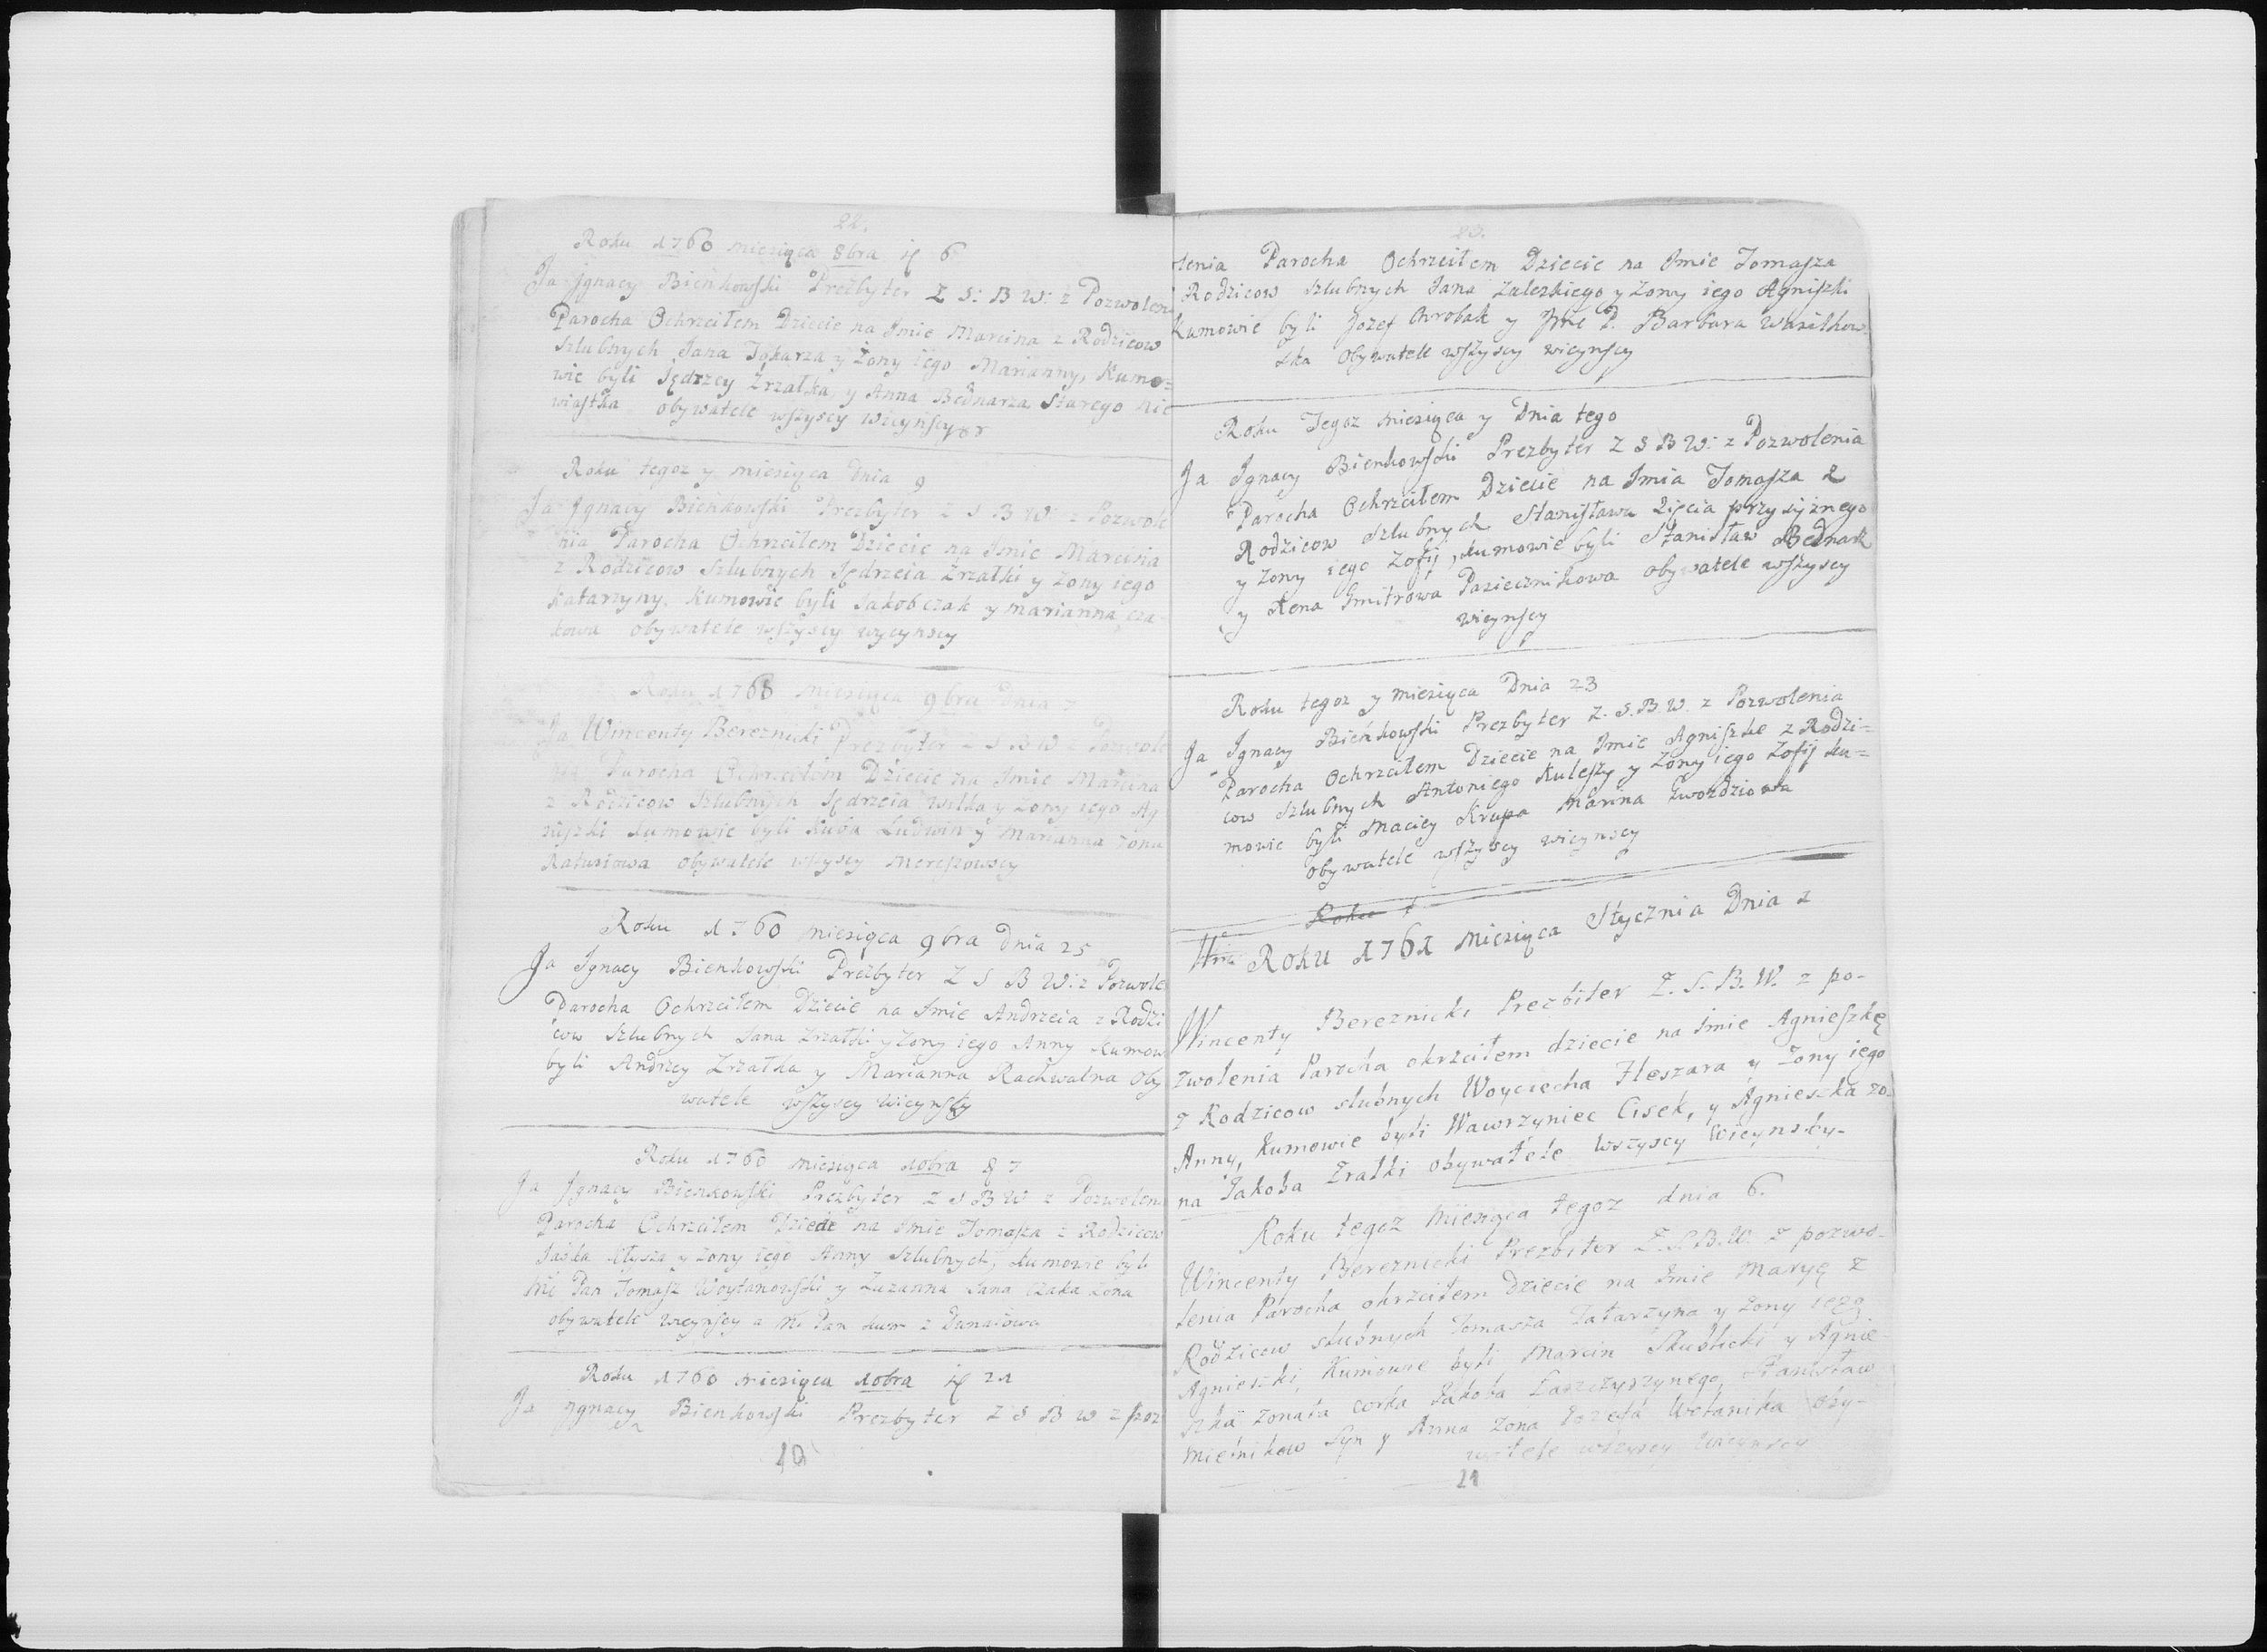 22.
Roku 1760 miesiąca 8bra 6
Ja Ignacy Bieńkowski Prezbyter Z S: B W: z Pozwoleni
Parocha Ochrzciłem Dziecie na Imie Marcina z Rodzicow
szlubnych Jana Tokarza y Żony iego Marianny, Kumo=
wie byli Jędrzey Zrzałka y Anna Bednarza Starego nie
wiastka obywatele wszyscy wicynscy
Roku tegoz y miesiąca Dnia 9
Ja Ignacy Bieńkowski Prezbyter Z S B W: z Pozwole
nia Parocha Ochrzciłem Dziecie na Imie Marcina
z Rodzicow szlubnych Jędrzeia Zrzałki y żony iego
Katarzyny. Kumowie byli Jakob czak y marianna cza-
kowa obywatele wszyscy wycynscy
Roku 1760 miesiąca 9bra Dnia 7
Ja Wincenty Bereznicki Prezbyter Z S B W z Pozwole
nia Parocha Ochrzciłem Dziecie na Imie Marcina
z Rodzicow szlubnych Jędrzeia Wilka y żony iego Ag
niszki kumowie byli Kuba Ludwin y Marianna żona
Ratusiowa obywatele wszyscy
Roku 1760 miesiąca 9bra Dnia 25
Ja Ignacy Bienkowski Prezbyter Z S B W: z Pozwole
Parocha Ochrzciłem Dziecie na Imie Andrzeia z Rodzi
cow szlubnych Jana Zrzałki y żony iego Anny kumow
byli Andrzey Zrzałka y Marianna Rachwalna oby
watele wszyscy wicynscy
Roku 1760 miesiąca 10bra 7
Ja Ignacy Bienkowski Prezbyter Z S B W z Pozwoleni
Parocha Ochrzciłem Dziecie na Imie Tomasza z Rodzicow
Jaśka Kłysza y żony iego Anny szlubnych, kumowie byli
Pan Tomasz Woytanowski y Zuzanna Jana czaka żona
obywatele wicynscy a Pan kum z Dunaiowa
Roku 1760 miesiąca 10bra 21
Ja Ignacy Bienkowski Prezbyter Z S B W z poz
23.
lenia Parocha Ochrzciłem Dziecie na Imie Tomasza
Rodzicow szlubnych Jana Zaleskiego y żony iego Agniszki
Kumowie byli Jozef Chrobak y P. Barbara Wasilkow-
ska obywatele wszyscy wicynscy
Roku Tegoz miesiąca y Dnia tego
Ja Ignacy Bienkowski Prezbyter Z S B W: z Pozwolenia
Parocha Ochrzciłem Dziecie na Imia Tomasza z
Rodzicow szlubnych Stanisława Zięcia przysiężnego
y żony iego Zofij, kumowie byli Stanisław Bednarz
y Anna Dmitrowa Pasiecznikowa obywatele wszyscy
wicynscy
Roku tegoz y miesiąca Dnia 23
Ja Ignacy Bieńkowski Prezbyter Z. S. B. W. z Pozwolenia
Parocha Ochrzciłem Dziecie na Imie Agniszke z Rodzi=
cow szlubnych Antoniego Kuleszy y żony iego Zofij ku=
mowie byli Maciey Krupa Marina Gwozdziowa
obywatele wszyscy wicynscy
Roku t
Roku 1761 miesiąca Stycznia Dnia 1
Wincenty Bereznicki Prezbiter Z. S. B. W. z po-
zwolenia Parocha okrzciłem dziecie na Imie Agnieszkę
z Rodzicow slubnych Woyciecha Fleszara y żony iego
Anny, Kumowie byli Wawrzyniec Cisek, y Agnieszka żo-
na Jakoba Zrałki obywatele wszyscy Wicynscy-
Roku tegoz miesiąca tegoz dnia 6.
Wincenty Bereznicki Prezbiter Z. S. B. W. z pozwo-
lenia Parocha okrzciłem Dziecie na Imie Maryę z
Rodzicow slubnych Tomasza Tatarzyna y żony iego
Agnieszki, Kumowie byli Marcin Skublicki y Agnie
szka żonata corka Jakoba Stanisław
Mielnikow syn y Anna żona Jozefa Wełanika oby-
watele wszyscy Wicynscy
21